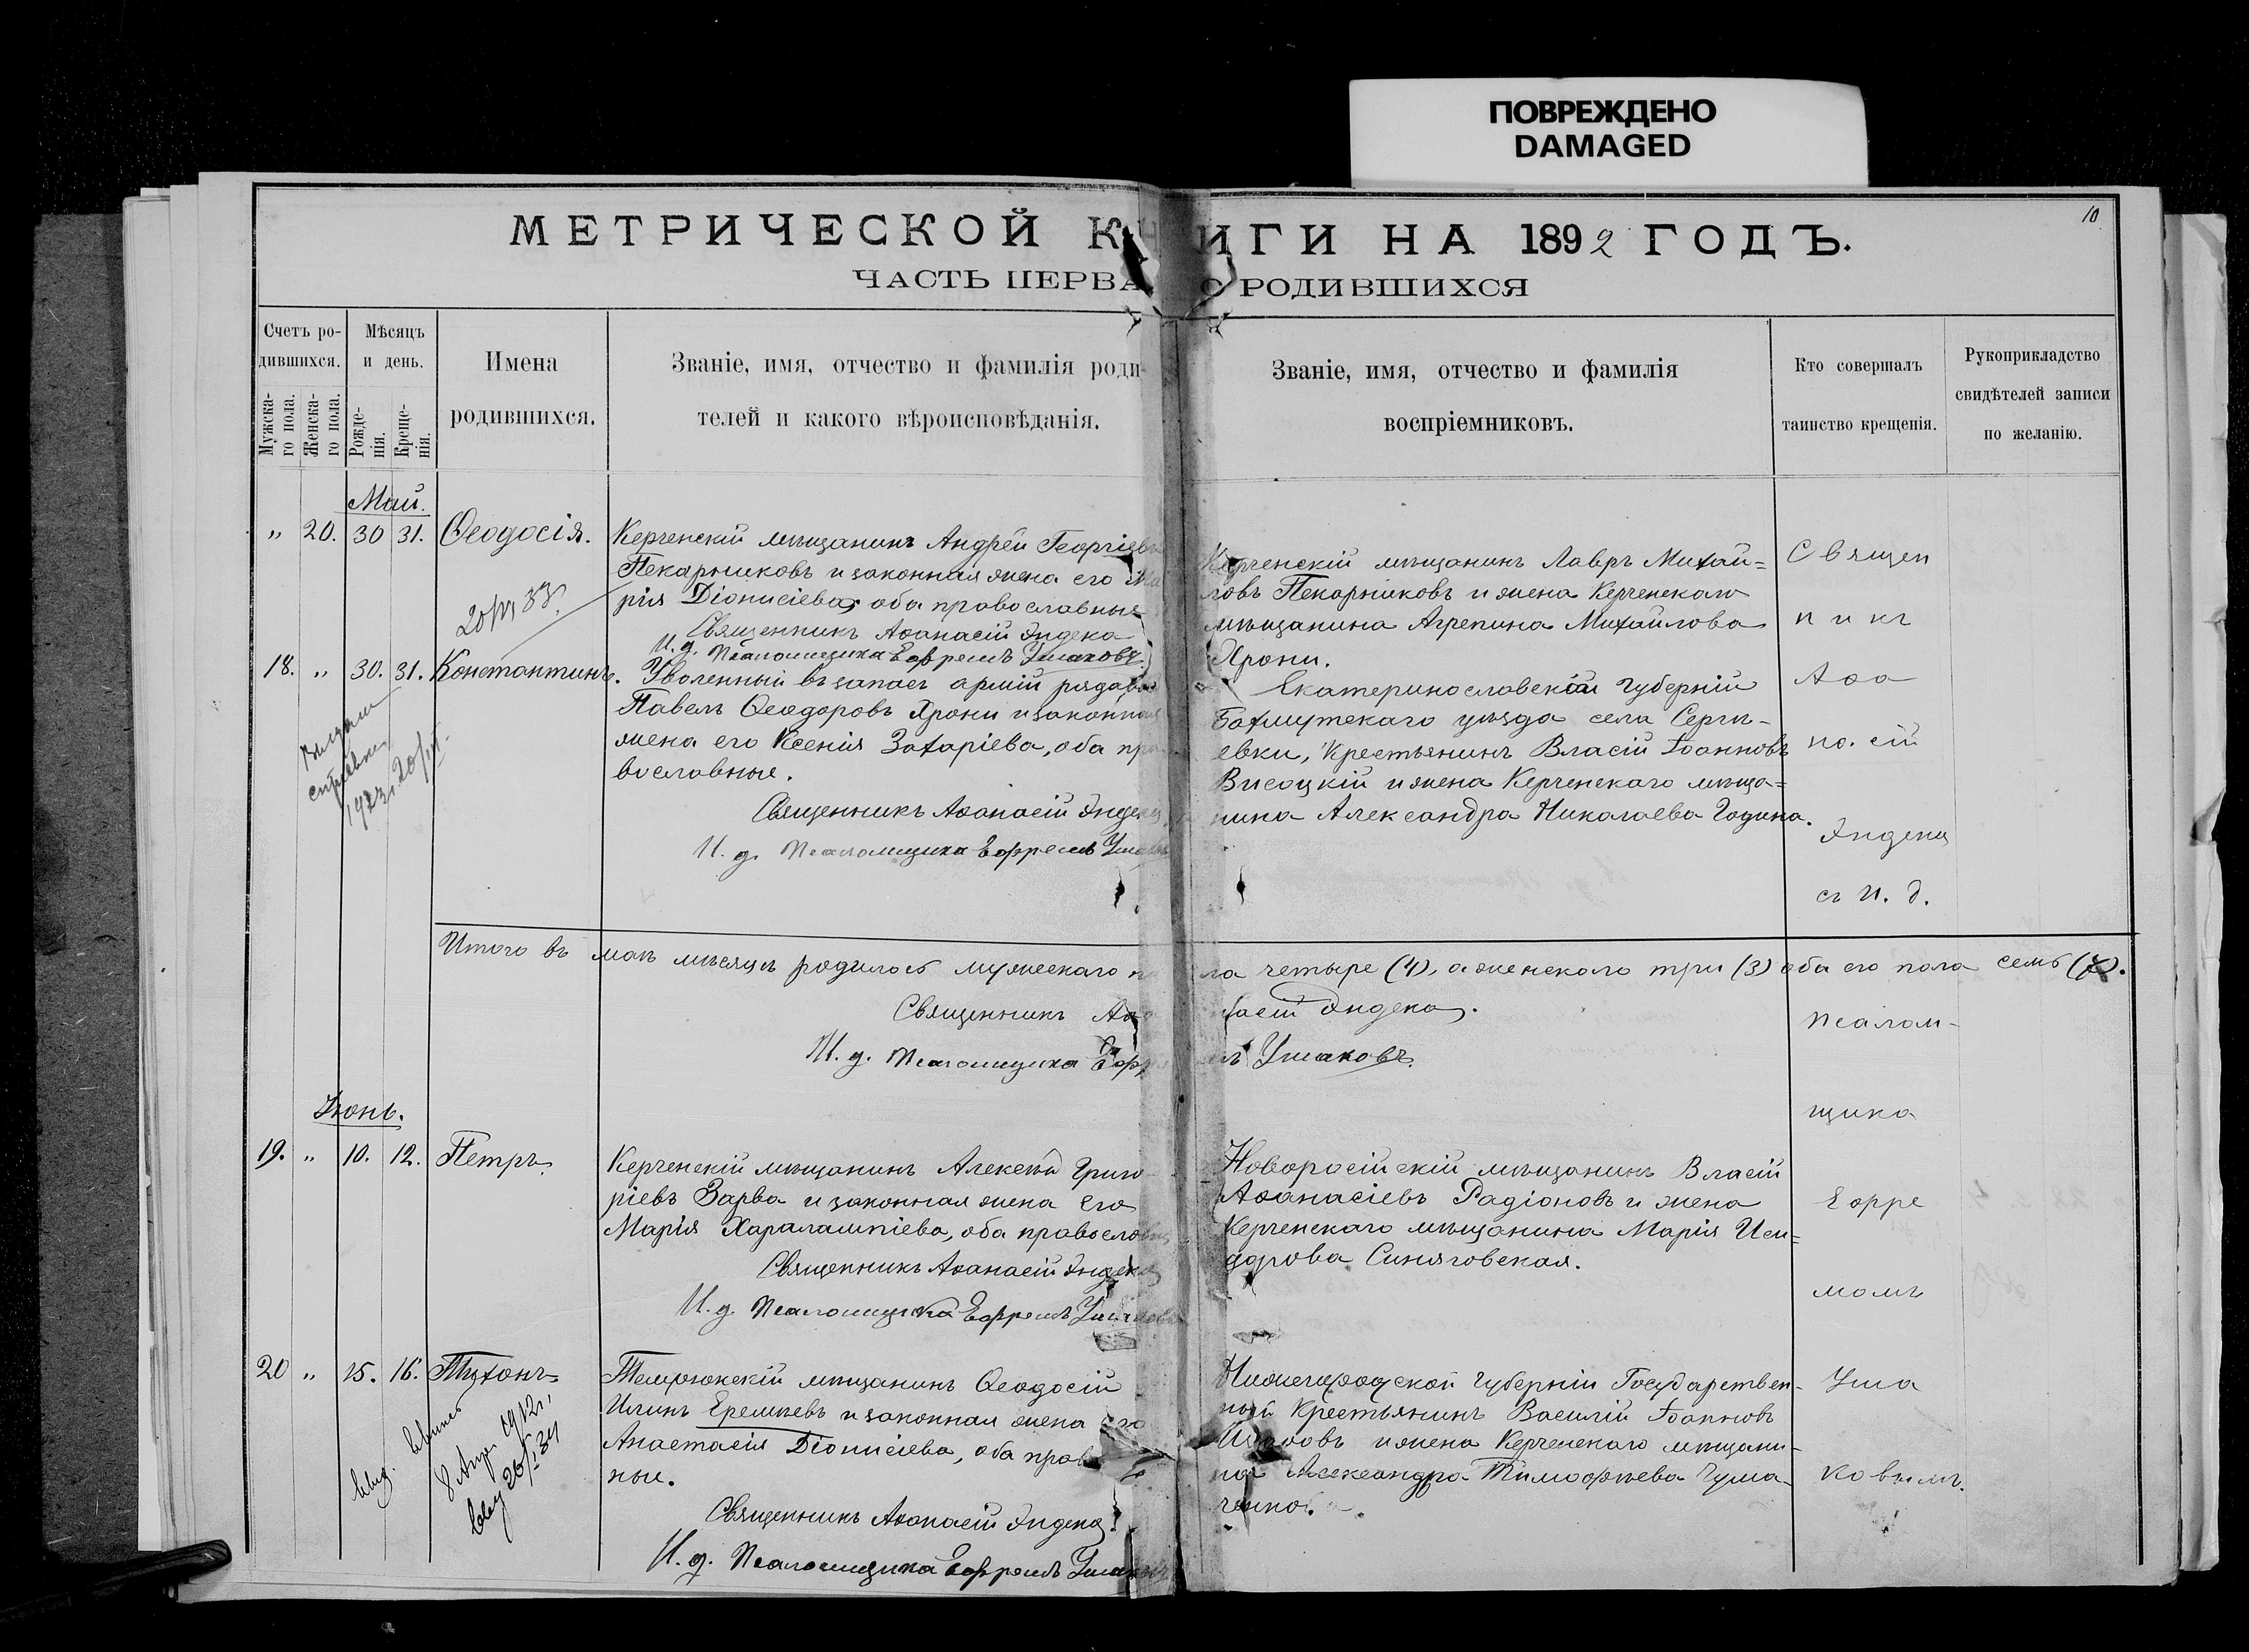 ПОВРЕЖДЕНО
DAMAGED
10
МЕТРИЧЕСКОЙ КНИГИ НА 1892 ГОДЪ.
ЧАСТЬ ПЕРВА О РОДИВШИХСЯ
Счетъ ро-
дившихся.
Мужска-
го пола.
Женска-
го пола.
Мѣсяцъ
и день.
Рожде-
нія.
Креще-
нія.
Имена
родившихся.
Званіе, имя, отчество и фамилія роди-
телей и какого вѣроисповѣданія.
Званіе, имя, отчество и фамилія
воспріемниковъ.
Кто совершалъ
таинство крещенія.
Рукоприкладство
свидѣтелей записи
по желанію.
Май.
„ 20. 30 31. Ѳеодосія.
Керченскій мѣщанинъ Андрей Георгіевъ
Пекарниковъ и законная жена его Ма
рія Діонисіева, оба православные
Священникъ Аѳанасій Эндека
И. д. Псаломщика Ефремъ Ушаковъ.
Керченскій мѣщанинъ Лавръ Михай=
ловъ Пекарниковъ и жена Керченскаго
мѣщанина Агрепина Михайлова
Хрони.
18. „ 30. 31. Константинъ.
Уволенный въ запасъ армій рядовой
Павелъ Ѳеодоровъ Хрони и законная
жена его Ксенія Захаріева, оба пра
вославные.
Священникъ Аѳанасій Эндека
И. д. Псаломщика Ефремъ Ушаковъ
Екатеринославскій губерніи
Бахмутскаго уѣзда села Серги-
евки, Крестьянинъ Власій Іоанновъ
Висоцкій и жена Керченскаго мѣща=
нина Александра Николаева Година.
1923
Итого въ маѣ мѣсяцѣ родилось мужескаго по ла четыре (4), а женскаго три (3) оба его пола семь (7).
Священникъ Аѳа насій Эндека.
И. д. Псаломщика Ефре мъ Ушаковъ.
Іюнь.
19. „ 10. 12. Петръ.
Керченскій мѣщанинъ Алексѣй Григо
ріевъ Зарва и законная жена его
Марія Харалампіева, оба православны
Священникъ Аѳанасій Эндека
И. д. Псаломщика Ефремъ Ушаковъ
Новоросійскій мѣщанинъ Власій
Аѳанасіевъ Радіоновъ и жена
Керченскаго мѣщанина Марія Иси=
дорова Синяговская.
20 „ 15. 16. Тихонъ
Темрюкскій мѣщанинъ Ѳеодосій
Ильинъ Еремѣевъ и законная жена его
Анастасія Діонисіева, оба прав
ные.
Священникъ Аѳанасій Эндека.
И. д. Псаломщика Ефремъ Ушаковъ
Нижегородской губерніи Государствен-
ный Крестьянинъ Василій Іоанновъ
и жена Керченскаго мѣщани-
на Александра Тимоѳѣева Чума-
Священ
никъ
Аѳа
на. сій
Эндека
съ И. д.
псалом-
щика
Ефре
момъ
Уша
ковымъ.